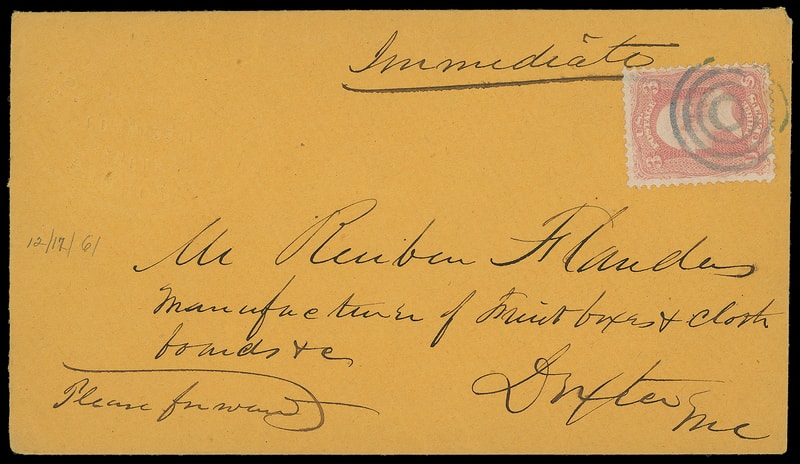 Immediate
U.S. POSTAGE
3 3
12/17/61
Mr Reuben Flanders
Manufacturer of Fruit boxes & cloth
boards &c
Please forward
Dexter Me